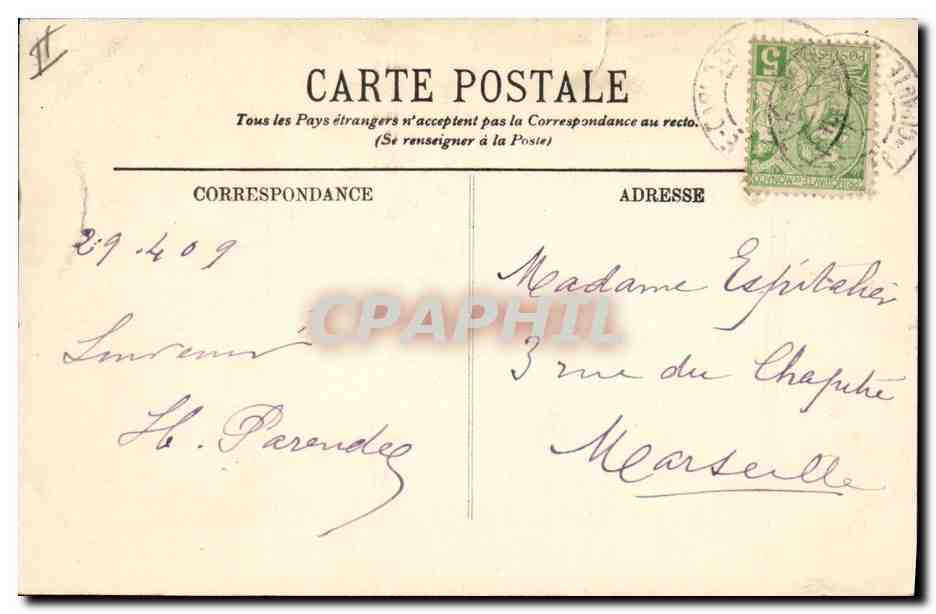 CARTE POSTALE
Tous les Pays étrangers n'acceptent pas la Correspondance au recto.
(Se renseigner à la Poste)
CORRESPONDANCE
ADRESSE
29.4 09
Souvenir
H. Parendel
Madame Espitalier
3 rue du Chapitre
Marseille
5
CPAPHIL